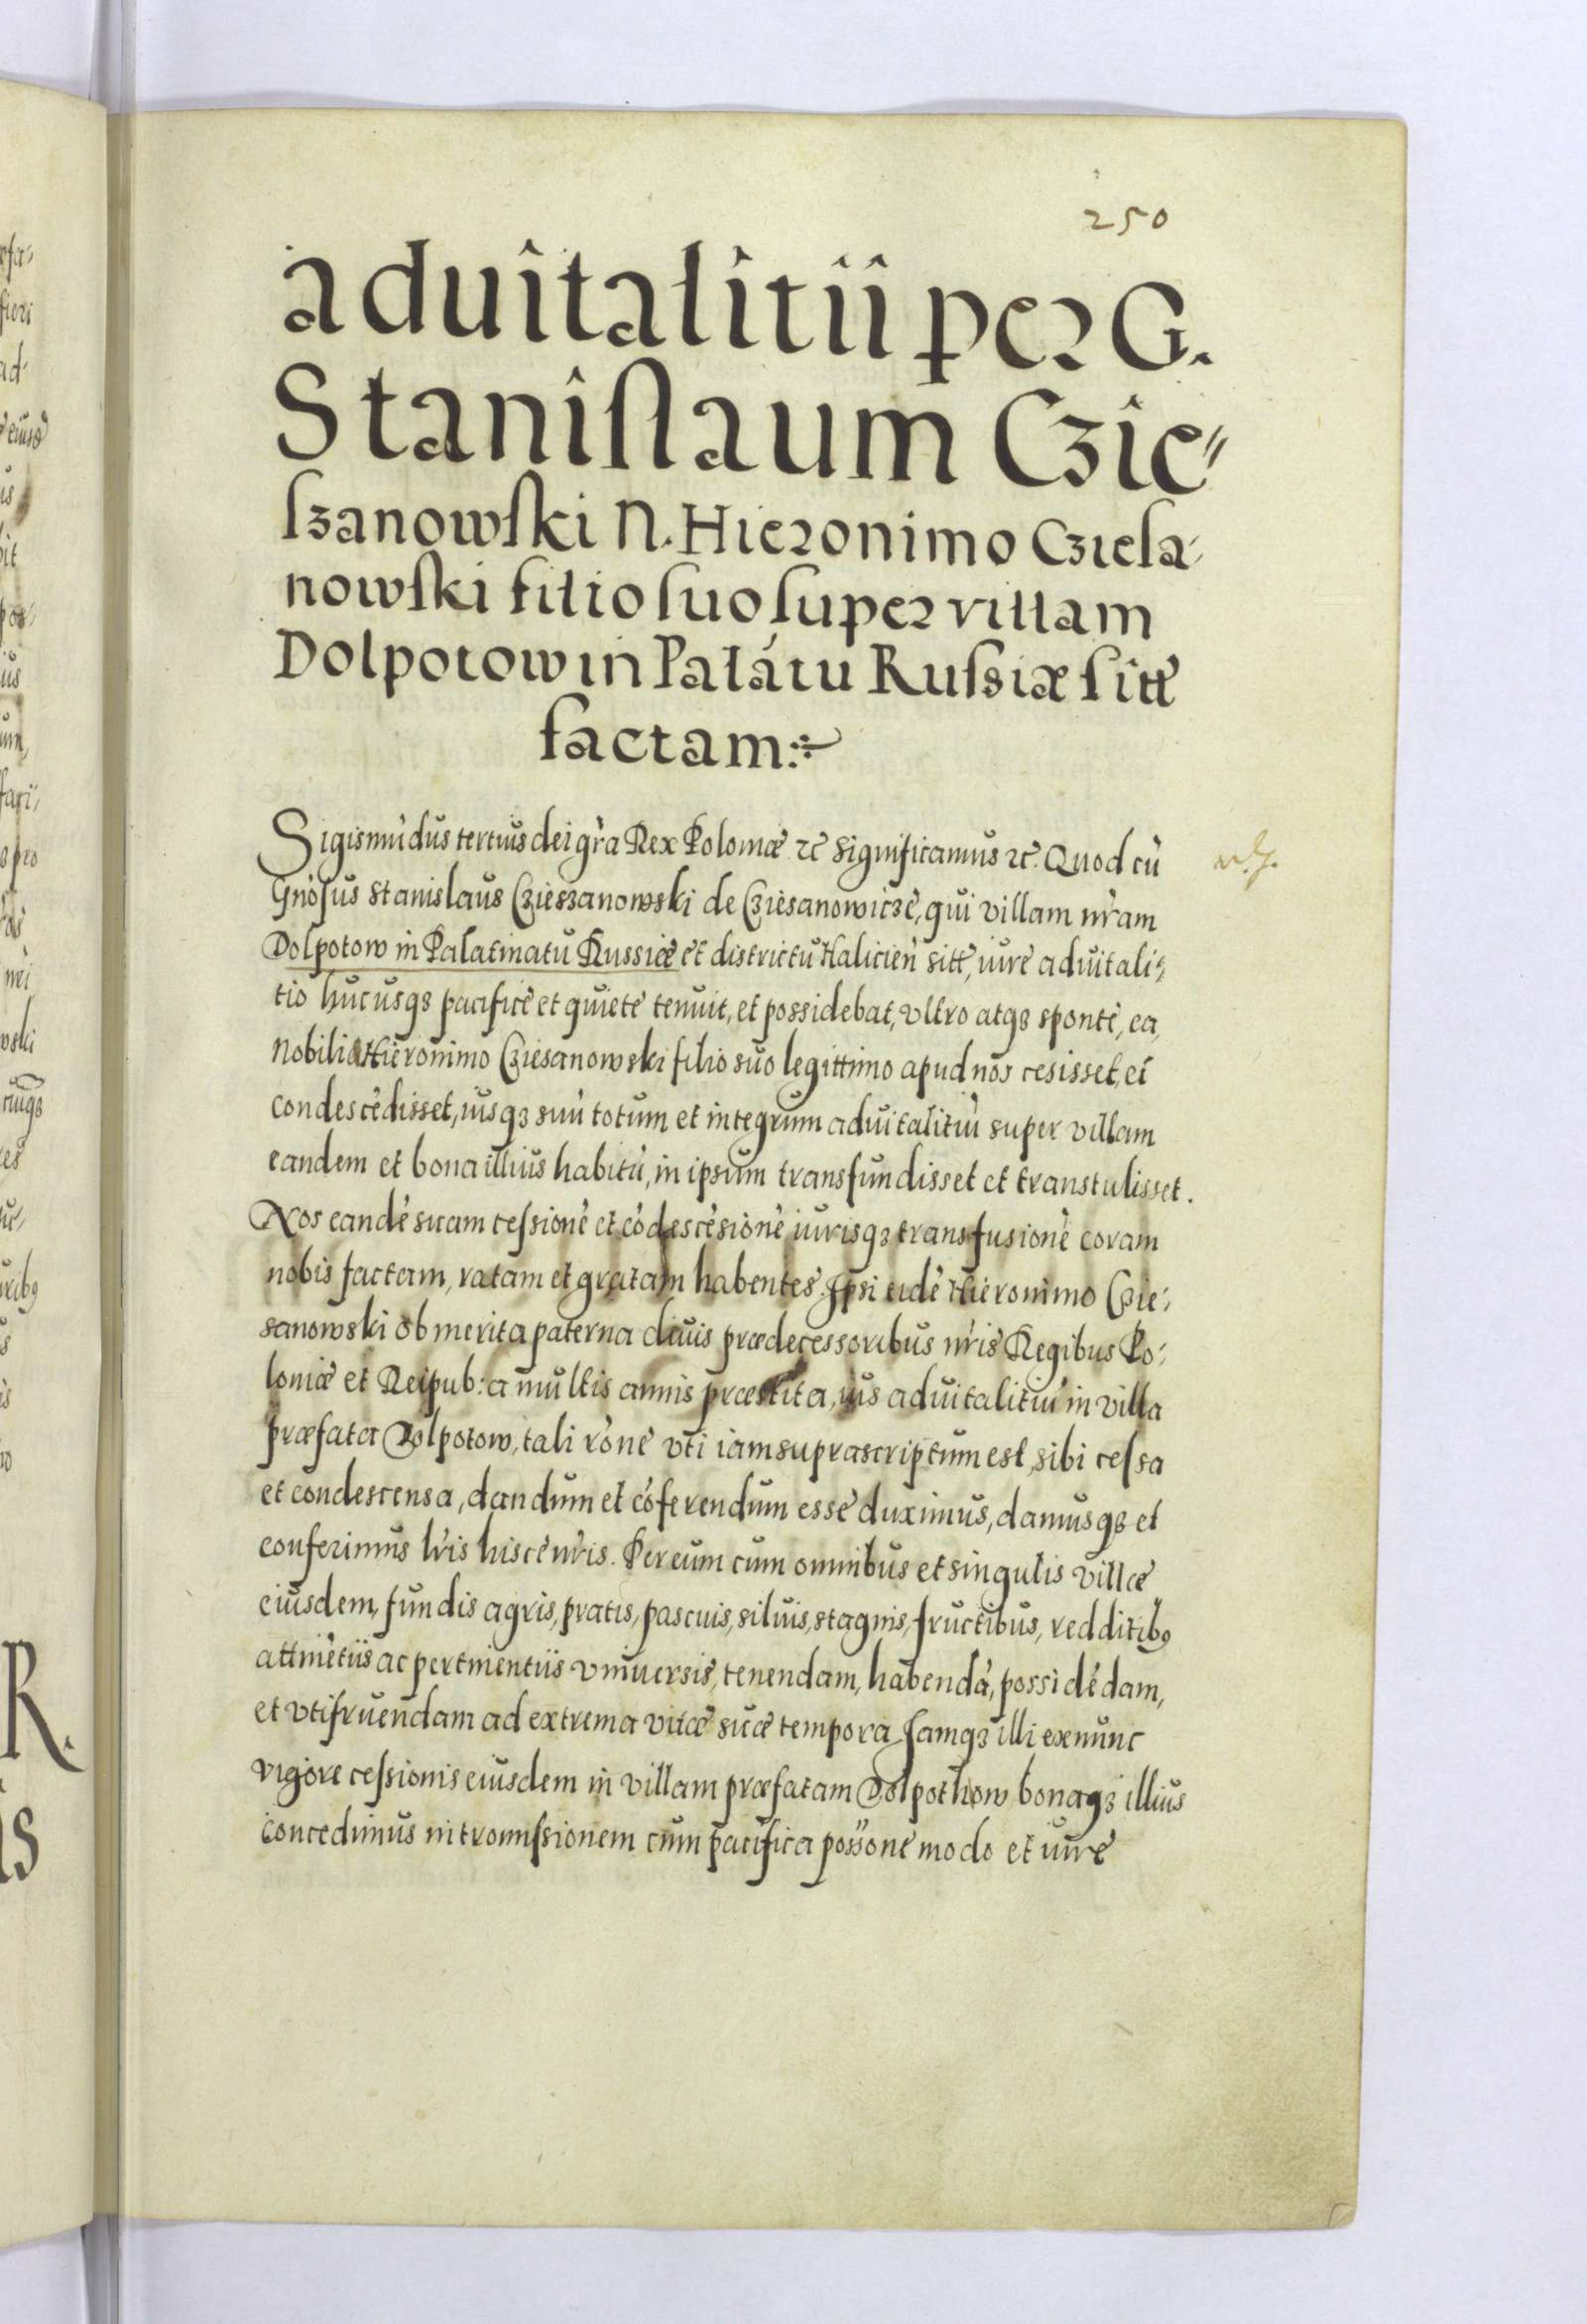 250
aduitalitii per G.
Stanislaum Czie-
szanowski N. Hieronimo Cziesa-
nowski filio suo super villam
Dolpotow in Palátu Russiæ sitt
factam
Sigismũdus tertius dei grã Rex Poloniæ etc significamus etc. Quod cũ
Gnõsus Stanislaus Czieszanowski de Cziesanowicze, qui villam nrãm
Dolpotow in Palatinatu Russiæ et districtu Halicieñ sitt, iure aduitali-
tio hucusq3 pacifice et quiete tenuit, et possidebat, vltro atq3 sponte, ea,
Nobili Hieronimo Cziesanowski filio suo legittimo apud nos cesisset, ei
condescẽdisset, iusq3 suũ totum et integrum aduitalitiũ super villam
eandem et bona illius habitũ, in ipsum transfundisset et transtulisset.
Nos eandẽ suam cessionẽ et cõdescẽsionẽ iurisq3 transfusionẽ coram
nobis factam, ratam et gratam habentes. Ipsi eidẽ Hieronimo Czie-
sanowski ob merita paterna diuis prædecessoribus nrĩs Regibus Po-
loniæ et Reipub: a multis annis præstita, ius aduitalitiũ in villa
præfata Dolpotow, tali rõne vti iam suprascriptum est, sibi cessa
et condescensa, dandum et cõferendum esse duximus, damusq3 et
conferimus lrĩs hiscẽ nrĩs. Per eum cum omnibus et singulis villæ
eiusdem, fundis agris, pratis, pascuis, siluis, stagnis, fructibus, redditib9
attinẽtiis ac pertinentiis vniuersis, tenendam, habendã, possidẽdam,
et vtifruendam ad extrema vitæ suæ tempora Iamq3 illi ex nunc
vigore cessionis eiusdem in villam præfatam Dolpothow bonaq3 illius
concedimus intromissionem cum pacifica possõne modo et iure